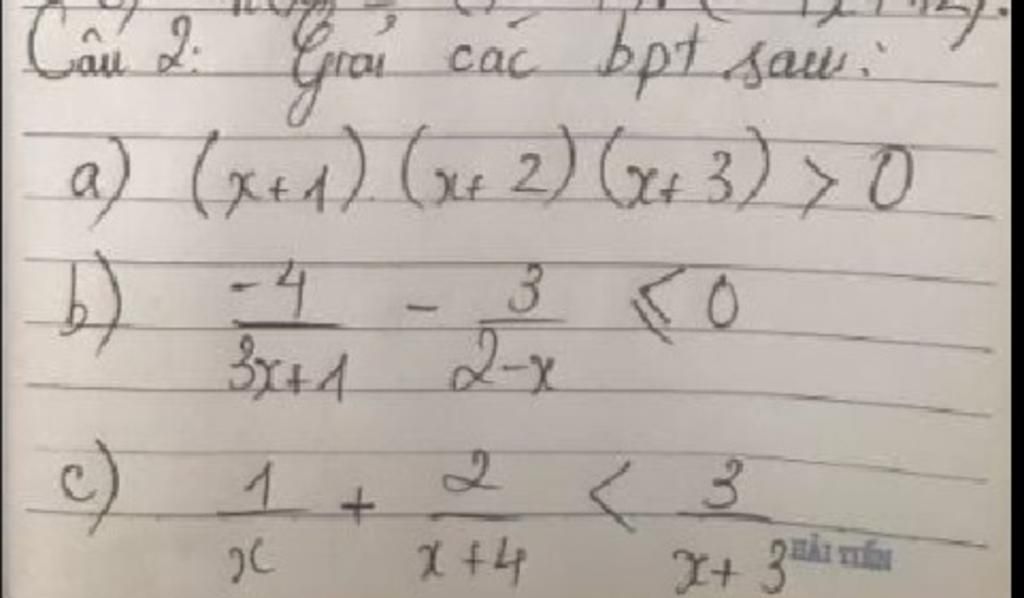 Câu 2: Giải các bpt sau:
a) (x+1).(x+2)(x+3) > 0
b) -4/(3x+1) - 3/(2-x) ≤ 0
c) 1/x + 2/(x+4) < 3/(x+3)
HẢI TIẾN